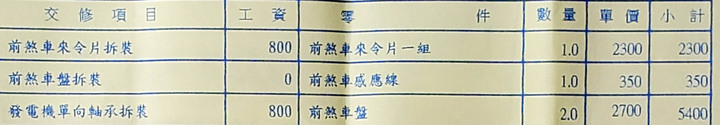 交修項目 工資 零件 數量 單價 小計
前煞車來令片拆裝 800 前煞車來令片一組 1.0 2300 2300
前煞車盤拆裝 0 前煞車感應線 1.0 350 350
發電機單向軸承拆裝 800 前煞車盤 2.0 2700 5400